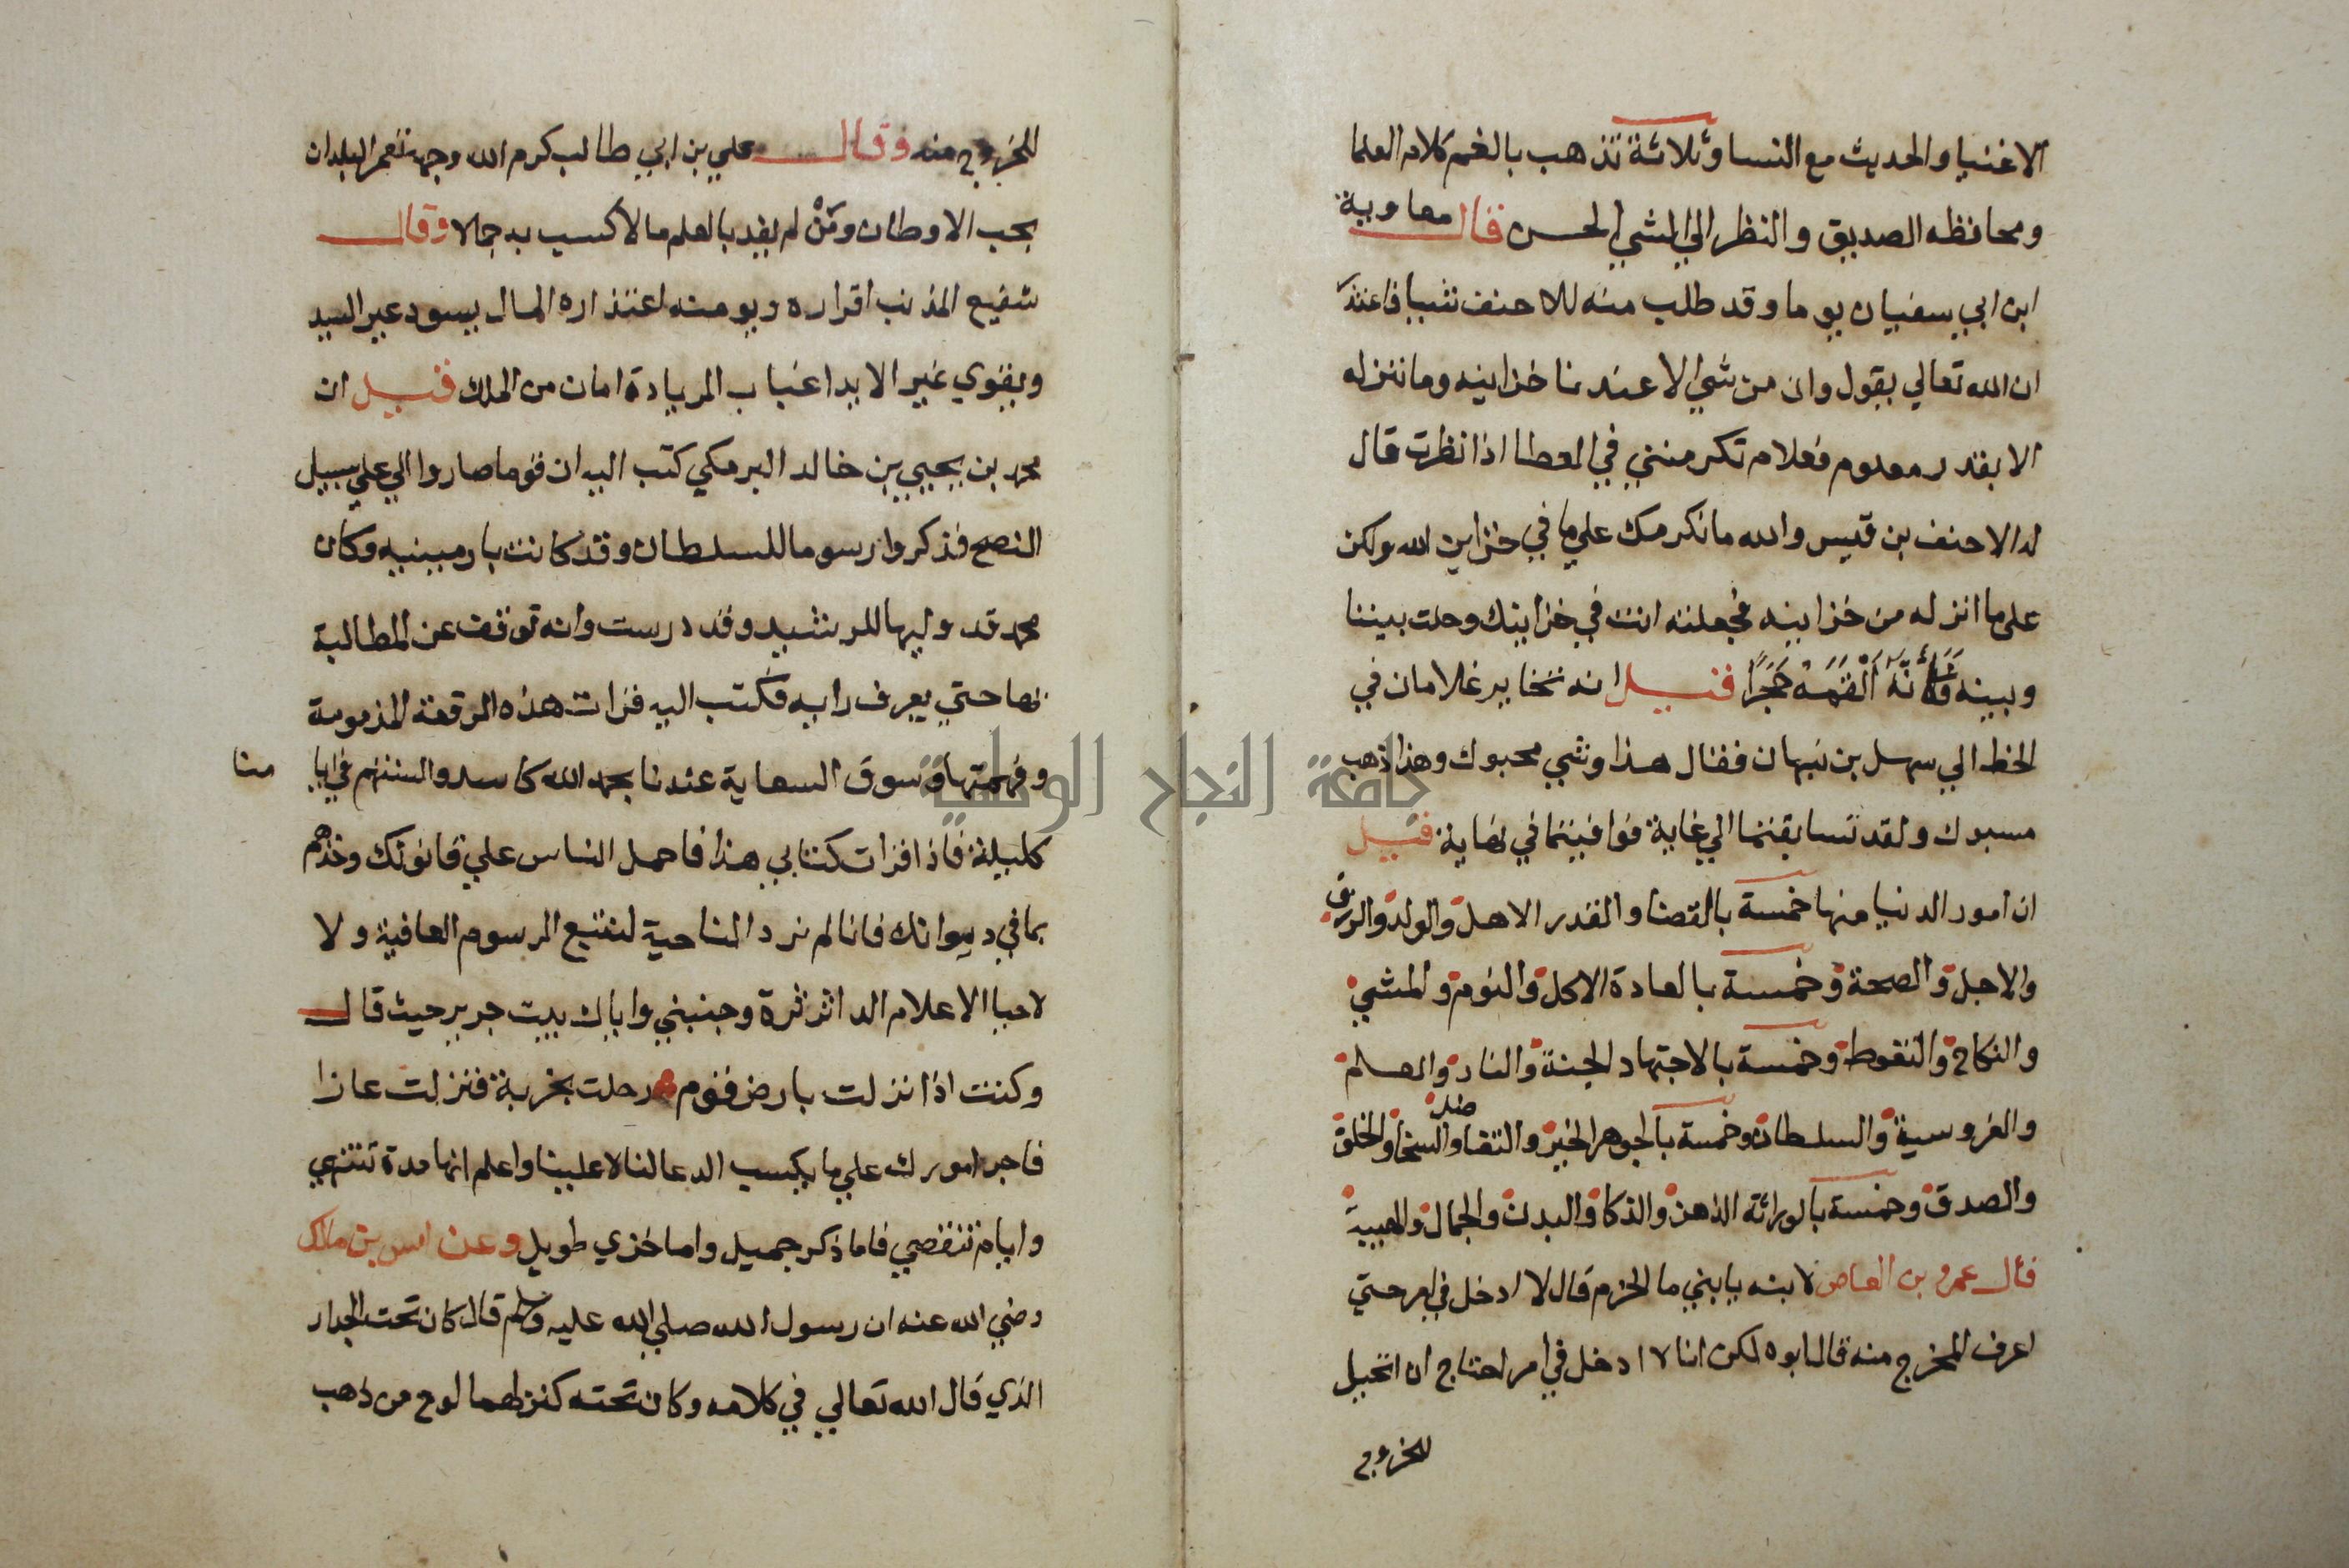 الاغنيا والحديث مع النسا وثلاثة تذهب بالغم كلام العلما
ومحافظه الصديق والنظر الي المشي الحسن قال معاوية
ابن ابي سفيان يوما وقد طلب منه للاحنف شيا فاعتذر
ان الله تعالي يقول وان من شي الا عندنا خزاينه وما ننزله
الا بقدر معلوم فعلام تكرمنني في العطا اذا نظرت قال
له الاحنف بن قيس والله ما نكرمك علي ما في خزاين الله ولكن
علي ما انزله من خزاينه فجعلته انت في خزاينك وحلت بيننا
وبينه فَكَأَنَّهُ أَلْقَمَهُ حَجَرًا قيل انه تخاير غلامان في
الخط الي سهل بن نبهان فقال هذا وشي محبوك وهذا ذهب
مسبوك ولقد تسابقتما الي غاية فوافيتما في نهاية قيل
ان امور الدنيا منها خمسة بالقضا والقدر الاهل والولد والرزق
والاجل والصحة وخمسة بالعادة الاكل والنوم والمشي
والنكاح والتغوط وخمسة بالاجتهاد الجنة والنار والعلم
والفروسية والسلطان وخمسة بالجوهر الخير والتقا والسخا والخلق
ضد
والصدق وخمسة بالوراثة الذهن والذكا والبدن والجمال والهيبة
قال عمرو بن العاص لابنه يا بني ما الحزم قال لا ادخل في امر حتي
اعرف المخرج منه قال ابوه لكن انا لا ادخل في امر احتاج ان اتحيل
للخروج
للخروج منه وقال علي بن ابي طالب كرم الله وجهه تعمر البلدان
بحب الاوطان ومَنْ لم يفد بالعلم مالا كسب به جمالا وقال
شفيع المذنب اقراره وتوبته اعتذاره المال يسود غير السيد
ويقوي غير الايد اغباب الزيادة امان من الملك قيل ان
محمد بن يحيي بن خالد البرمكي كتب اليه ان قوما صاروا الي علي سبيل
النصح فذكروا رسوما للسلطان وقد كانت بارمينيه وكان
محمد قد وليها للرشيد وقد درست وانه توقف عن المطالبة
بها حتي يعرف رايه فكتب اليه قرات هذه الرقعة المذمومة
وفهمتها وسوق السعاية عندنا بحمد الله كاسد والسنتهم في ايا
منا
كليلة فاذا قرات كتابي هذا فاحمل الناس علي قانونك وخذهم
بما في ديوانك فانا لم نرد الناحية لتتبع الرسوم العافية ولا
لاحيا الاعلام الداثرة وجنبني واياك بيت جرير حيث قال
وكنت اذا نزلت بارض قوم رحلت بخزية فنزلت عارا
فاجر امورك علي ما يكسب الدعا لنا لا علينا واعلم انها مدة تنتهي
وايام تنقضي فاما ذكر جميل واما خزي طويل وعن انس بن مالك
رضي الله عنه ان رسول الله صلي الله عليه وسلم قال كان تحت الجدار
الذي قال الله تعالي في كلامه وكان تحته كنز لهما لوح من ذهب
جامعة النجاح الوطنية